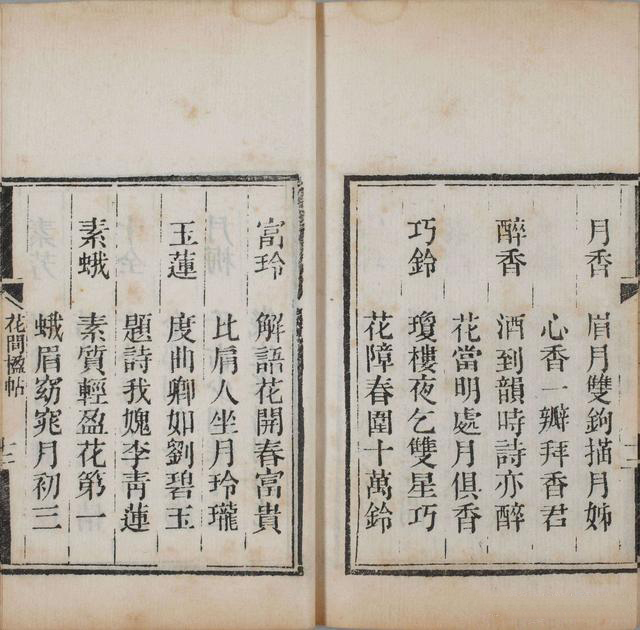 月香　眉月雙鉤描月姊
心香一瓣拜香君
醉香　酒到韻時詩亦醉
花當明處月俱香
巧鈴　瓊樓夜乞雙星巧
花障春圍十萬鈴
富玲　解語花開春富貴
比肩人坐月玲瓏
玉蓮　度曲卿如劉碧玉
題詩我媿李靑蓮
素蛾　素質輕盈花第一
蛾眉窈窕月初三
花間楹帖